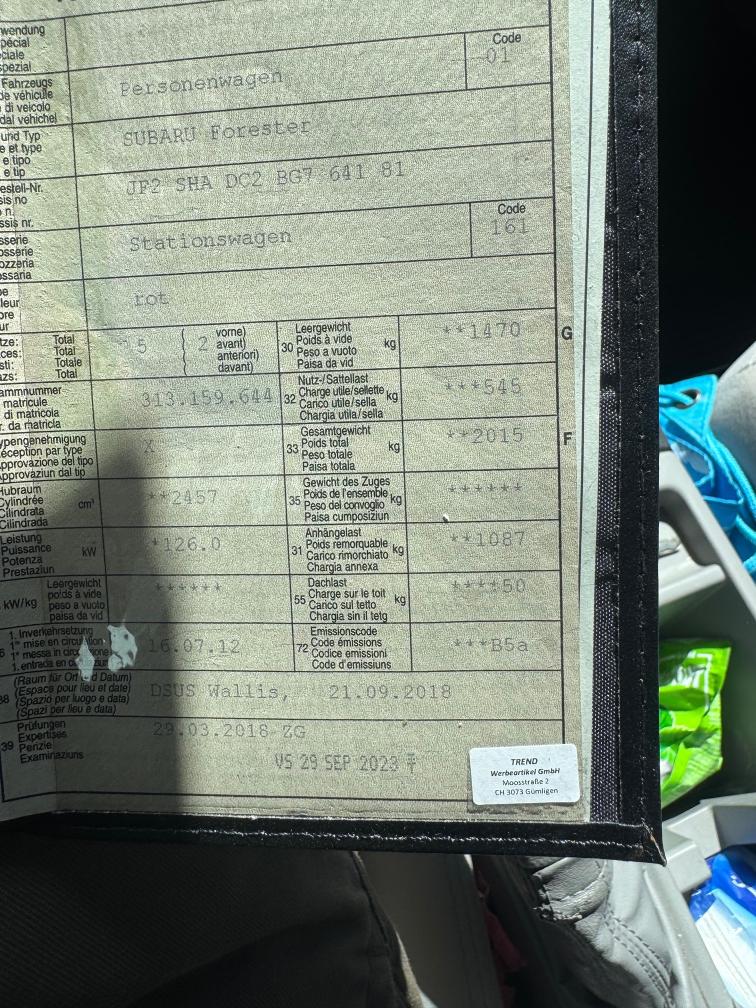 wendung
pécial
ciale
spezial
Code
01
Fahrzeugs
de véhicule
di veicolo
dal vehichel
Personenwagen
und Typ
e et type
e tipo
e tip
SUBARU Forester
estell-Nr.
sis no
n.
ssis nr.
JF2 SHA DC2 BG7 641 81
sserie
osserie
ozzeria
ossaria
Stationswagen
Code
161
be
leur
ore
ur
rot
tze: Total
ces: Total
sti: Totale
azs: Total
5
2
vorne)
avant)
anteriori)
davant)
30 Leergewicht
Poids à vide
Peso a vuoto
Paisa da vid
kg
**1470
G
ammnummer
matricule
di matricola
r. da matricla
313.159.644
32 Nutz-/Sattellast
Charge utile/sellette
Carico utile/sella
Chargia utila/sella
kg
***545
ypengenehmigung
éception par type
Approvazione del tipo
pprovaziun dal tip
X
33 Gesamtgewicht
Poids total
Peso totale
Paisa totala
kg
**2015
F
Hubraum
Cylindrée
Cilindrata
Cilindrada
cm³
**2457
35 Gewicht des Zuges
Poids de l'ensemble
Peso del convoglio
Paisa cumposiziun
kg
******
Leistung
Puissance
Potenza
Prestaziun
kW
*126.0
31 Anhängelast
Poids remorquable
Carico rimorchiato
Chargia annexa
kg
**1087
kW/kg
Leergewicht
poids à vide
peso a vuoto
paisa da vid
******
55 Dachlast
Charge sur le toit
Carico sul tetto
Chargia sin il tetg
kg
****50
1. Inverkehrsetzung
1re mise en circulation
1a messa in circ
1. entrada en c
16.07.12
72 Emissionscode
Code émissions
Codice emissioni
Code d'emissiuns
***B5a
38 (Raum für Ort und Datum)
(Espace pour lieu et date)
(Spazio per luogo e data)
(Spazi per lieu e data)
DSUS Wallis, 21.09.2018
39 Prüfungen
Expertises
Perizie
Examinaziuns
29.03.2018 ZG
VS 29 SEP 2023
TREND
Werbeartikel GmbH
Moosstraße 2
CH 3073 Gümligen